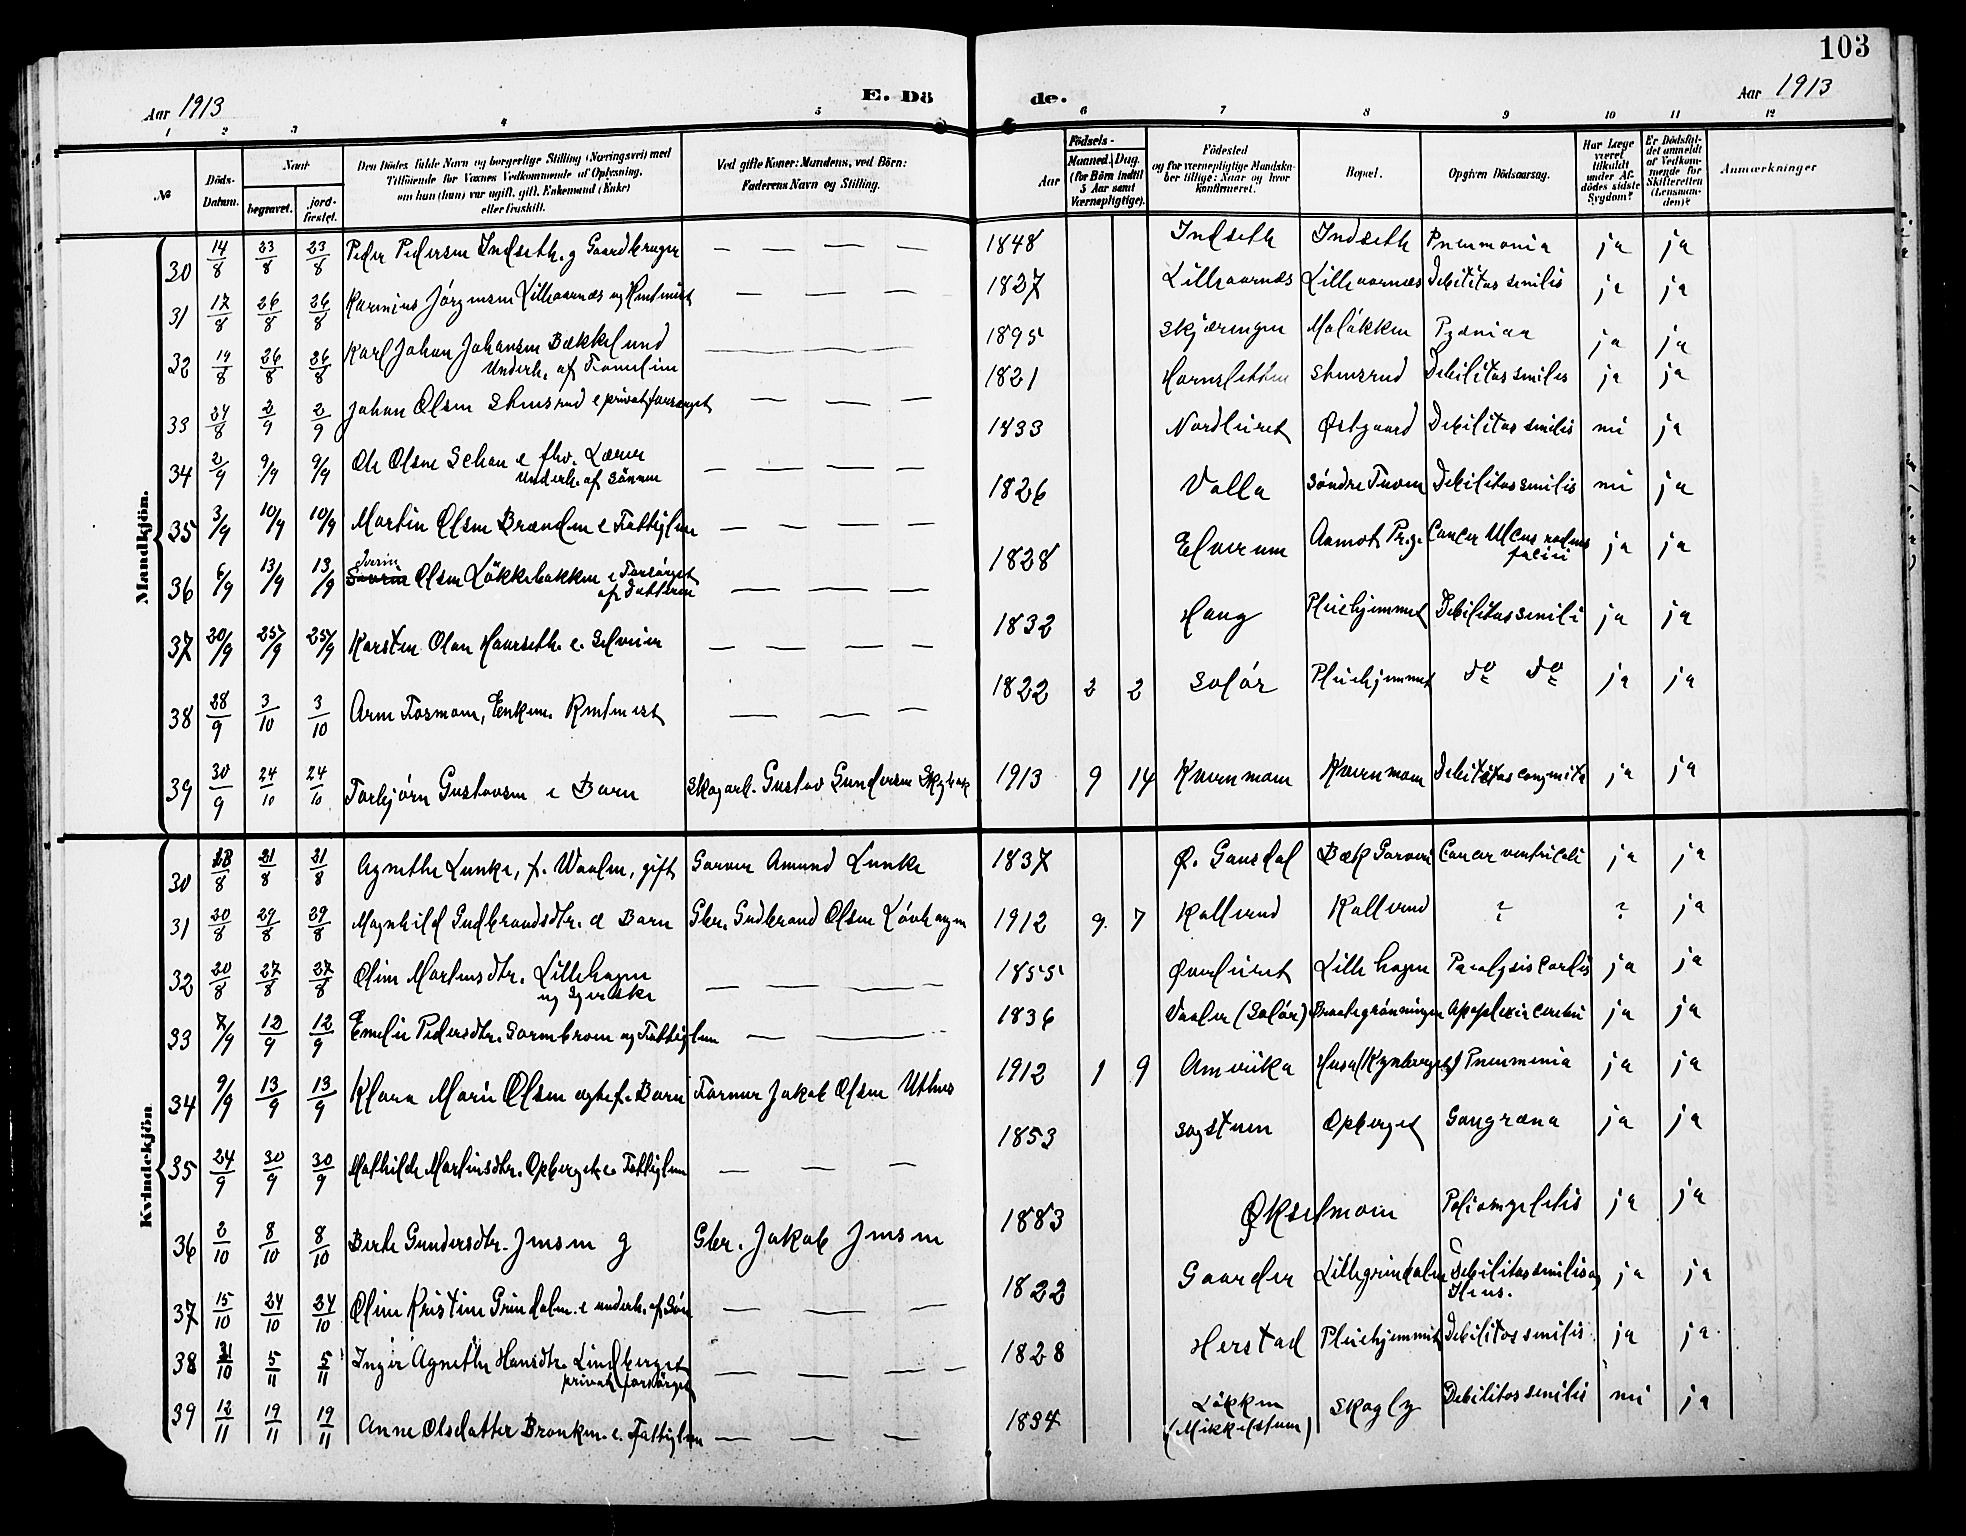 103
Aar 1913
E. Dö
de.
Aar 1913
1 2 3 4 5 6 7 8 9 10 11 12
№
Döds-Datum.
Naar
begravet.
jord-fæstet.
Den Dödes fulde Navn og borgerlige Stilling (Næringsvei) med
Tilföiende for Voxnes Vedkommende af Oplysning,
om han (hun) var ugift, gift, Enkemand (Enke)
eller fraskilt.
Ved gifte Koner: Mandens, ved Börn:
Faderens Navn og Stilling.
Aar
Födsels-
Maaned. Dag.
(for Börn indtil
5 Aar samt
Værnepligtige).
Födested
og for værnepligtige Mandska-
ber tillige: Naar og hvor
konfirmeret.
Bopæl.
Opgiven Dödsaarsag.
Har Læge
været
tilkaldt
under Af-
dödes sidste
Sygdom?
Er Dödsfal-
det anmeldt
af Vedkom-
mende for
Skifteretten
(Lensman-
den)?
Anmærkninger
Mandkjön.
30 14/8 23/8 23/8 Peder Pedersen Indseth. g Gaardbruger — — — — 1848 Indseth Indseth Pneumonia ja ja
31 17/8 26/8 26/8 Karinius Jörgensen Lilleaarnæs ug — — — 1827 Lilleaarnæs Lilleaarnæs Debilitas senilis ja ja
32 19/8 26/8 26/8 Karl Johan Johansen Bækkelund
Underh. af Familien 1895 Skjæringen Malökken Pyæmiaa ja ja
33 24/8 2/9 2/9 Johan Olsen Stensrud e privat forsörget — — — 1821 Hornsletten Stensrud Debilitas senilis ja ja
34 2/9 9/9 9/9 Ole Olsen Schou e fhv. Lærer
Underh. af Sönnen — — — — 1833 Nordleiret Østgaard Debilitas senilis nei ja
35 3/9 10/9 10/9 Martin Olsen Brænden e Fattiglem — — — — 1826 Valla Söndre Tuven Debilitas senilis nei ja
36 6/9 13/9 13/9 Iverin
Olsen Lökkebakken e Forsörget
af Datteren — — — 1828 Elverum Aamot Pr.g. Cancer Ulcus rodens
faciei ja ja
37 20/9 25/9 25/9 Karsten Olsen Haarseth. e. Selveier — — — — 1832 Haug Pleiehjemmet Debilitas senili ja ja
38 28/9 3/10 3/10 Arne Fosmoen, Enkem. Rentenist — — — 1822 2 2 Solör Pleiehjemmet do do ja ja
39 30/9 24/10 24/10 Torbjörn Gustavsen e Barn Skogarb. Gustav Gundersen 1913 9 14 Kvernmoen Kvernmoen Debilitas congenita ja ja
Kvindekjön
30 18/8 21/8 21/8 Agnethe Lunke, f. Waalen, gift Garver Amund Lunke 1837 Ø. Gausdal Bæk Garveri Cancer ventriculi ja ja
31 20/8 29/8 29/8 Magnhild Gudbrandsdtr. e Barn Gbr. Gudbrand Olsen Lövhaugen 1912 9 7 Kallerud Kallerud ? ? ja
32 20/8 27/8 27/8 Oline Martensdtr. Lillehagen
ug — — — — 1855 Øverleiret Lillehagen Paralysis Cordis ja ja
33 7/9 12/9 12/9 Emelie Pedersdtr. Sormbroen ug Fattiglem — — 1836 Vaaler (Solör) Braategrönningen Apoplexia cerebri ja ja
34 9/9 13/9 13/9 Klara Marie Olsen ægtef. Barn Farmer Jakob Olsen Utnes 1912 1 9 Amerika Husa (Kynberget) Pneumonia ja ja
35 24/9 30/9 30/9 Mathilde Martinsdtr. Opberget e. Fattiglem — — — 1853 Sagstuen Opberget Gangræna ja ja
36 2/10 8/10 8/10 Berte Gundersdtr. Jensen g Gbr. Jakob Jensen 1883 Økselmoen Poliomyelitis ja ja
37 15/10 24/10 24/10 Oline Kristine Grindalen. e underh. af Sön — — — 1822 Gaarder Lillegrindalen Debilitas senilis og
Ileus. ja ja
38 31/10 5/11 5/11 Inger Agnethe Hansdtr. Lindberget
privat forsörget — — — — 1828 Herstad Pleiehjemmet Debilitas senilis ja ja
39 12/11 19/11 19/11 Anne Olsdatter Bronken. e. Fattiglem — — — 1834 Lökken
(Mikkelstuen) Skogly Debilitas senilis nei ja